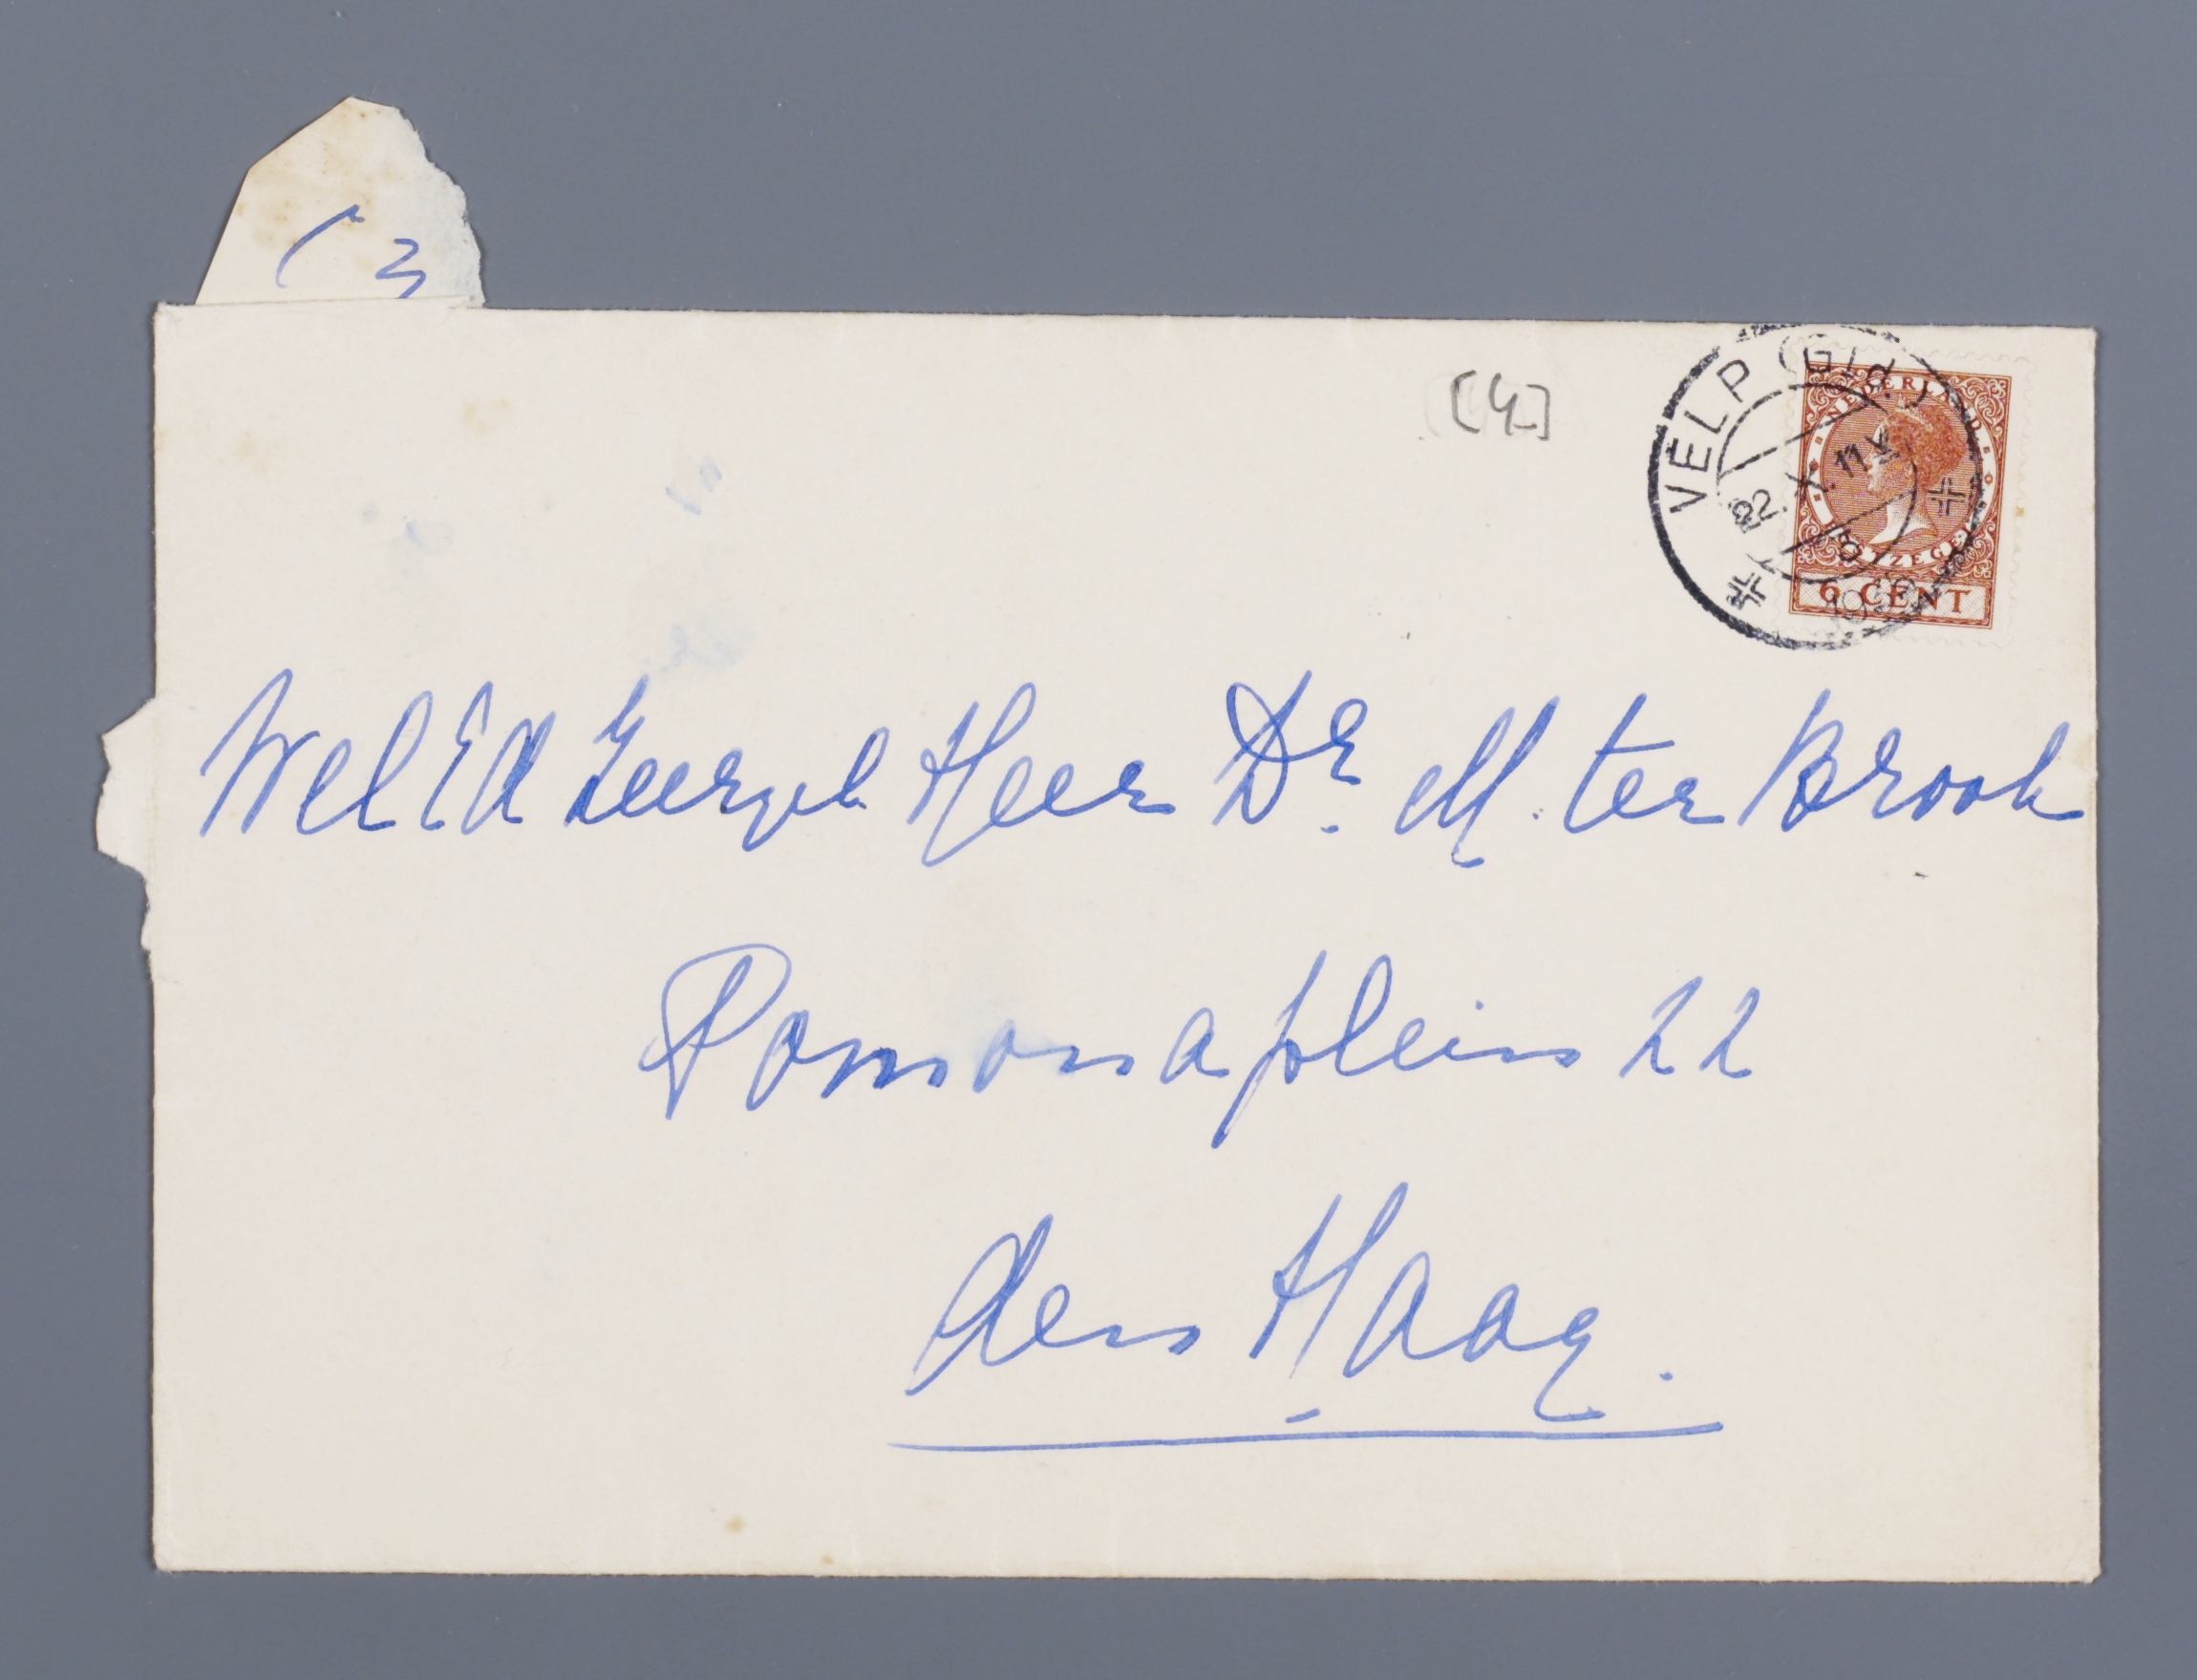 ( 3
[4]
VELP (Gld.)
22. X. 11 V
8
NEDERLAND
6 CENT
Wel Ed Zeergel Heer Dr. M. ter Braak
Pomonaplein 22
den Haag.